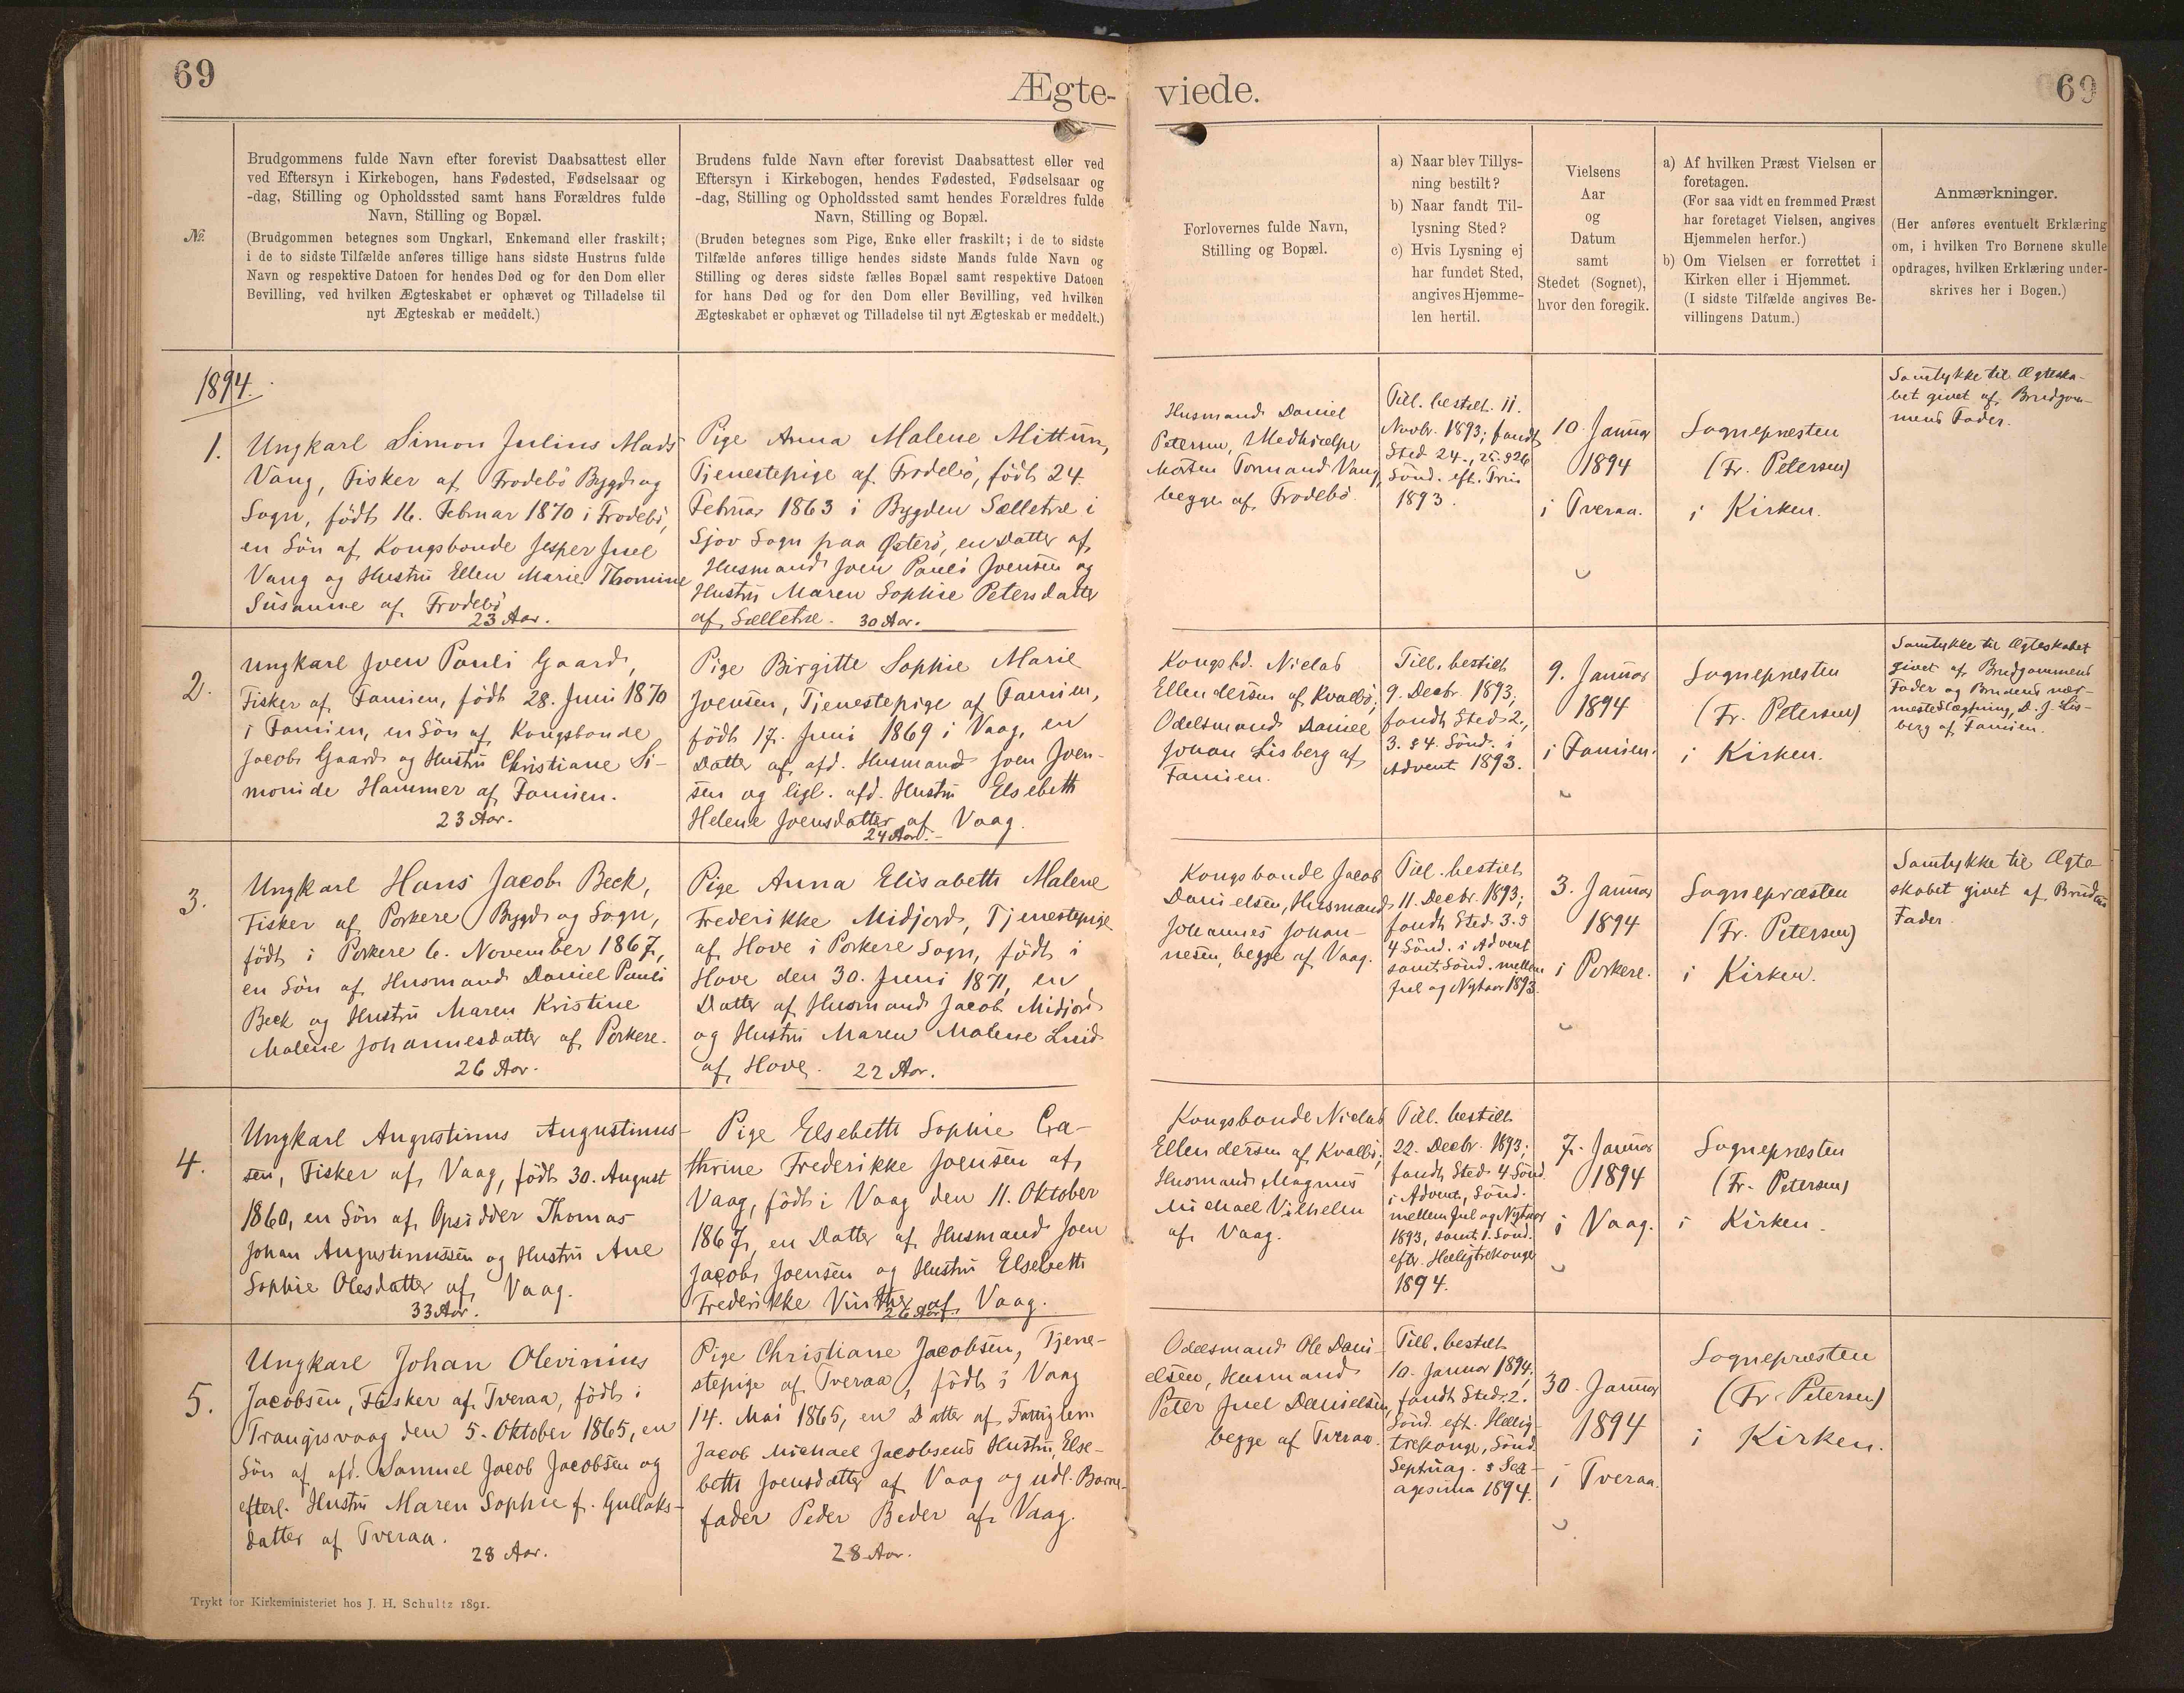 69
Ægte-
viede.
69
№
Brudgommens fulde Navn efter forevist Daabsattest eller
ved Eftersyn i Kirkebogen, hans Fødested, Fødselsaar og
-dag, Stilling og Opholdssted samt hans Forældres fulde
Navn, Stilling og Bopæl.
(Brudgommen betegnes som Ungkarl, Enkemand eller fraskilt;
i de to sidste Tilfælde anføres tillige hans sidste Hustrus fulde
Navn og respektive Datoen for hendes Død og for den Dom eller
Bevilling, ved hvilken Ægteskabet er ophævet og Tilladelse til
nyt Ægteskab er meddelt.)
Brudens fulde Navn efter forevist Daabsattest eller ved
Eftersyn i Kirkebogen, hendes Fødested, Fødselsaar og
-dag, Stilling og Opholdssted samt hendes Forældres fulde
Navn, Stilling og Bopæl.
(Bruden betegnes som Pige, Enke eller fraskilt; i de to sidste
Tilfælde anføres tillige hendes sidste Mands fulde Navn og
Stilling og deres sidste fælles Bopæl samt respektive Datoen
for hans Død og for den Dom eller Bevilling, ved hvilken
Ægteskabet er ophævet og Tilladelse til nyt Ægteskab er meddelt.)
Forlovernes fulde Navn,
Stilling og Bopæl.
a) Naar blev Tillys-
ning bestilt?
b) Naar fandt Til-
lysning Sted?
c) Hvis Lysning ej
har fundet Sted,
angives Hjemme-
len hertil.
Vielsens
Aar
og
Datum
samt
Stedet (Sognet),
hvor den foregik.
a) Af hvilken Præst Vielsen er
foretagen.
(For saa vidt en fremmed Præst
har foretaget Vielsen, angives
Hjemmelen herfor.)
b) Om Vielsen er forrettet i
Kirken eller i Hjemmet.
(I sidste Tilfælde angives Be-
villingens Datum.)
Anmærkninger.
(Her anføres eventuelt Erklæring
om, i hvilken Tro Børnene skulle
opdrages, hvilken Erklæring under-
skrives her i Bogen.)
1894.
1.
Ungkarl Simon Julius Mads
Vang, Fisker af Frodebö Bygd og
Sogn, födt 16. Februar 1870 i Frodebö,
en Sön af Kongsbonde Jesper Juel
Vang og Hustru Ellen Marie Thomine
Susanne af Frodebö
23 Aar.
Pige Anna Malene Mittun,
Tjenestepige af Frodebö, födt 24
Februar 1863 i Bygden Selletræ i
Sjov Sogn paa Österö, en Datter af
Husmand Joen Pauli Joensen og
Hustru Maren Sophie Petersdatter
af Selletræ. 30 Aar.
Husmand Daniel
Petersen, Medhjælper
Morten Tormand Vang,
begge af Frodebö.
Till. bestilt 11.
Novbr. 1893; fandt
Sted 24., 25. & 26
Sönd. eft. Trin
1893.
10. Januar
1894
i Tveraa.
Sognepræsten
(Fr. Petersen)
i Kirken.
Samtykke til Ægteska-
bet givet af Brudgom-
mens Fader.
2.
Ungkarl Joen Pauli Gaard,
Fisker af Famien, födt 28. Juni 1870
i Famien, en Sön af Kongsbonde
Jacob Gaard og Hustru Christiane Si-
monide Hammer af Famien.
23 Aar.
Pige Birgitte Sophie Marie
Joensen, Tjenestepige af Famien,
födt 17. Juni 1869 i Vaag, en
Datter af afd. Husmand Joen Joen-
sen og ligl. afd. Hustru Elsebeth
Helene Joensdatter af Vaag.
24 Aar.
Kongsbd. Niclas
Ellendersen af Kvalbö;
Odelsmand Daniel
Johan Lisberg af
Famien.
Till. bestilt
9. Decbr. 1893;
fandt Sted 2.,
3. & 4. Sönd. i
Advent 1893.
9. Januar
1894
i Famien.
Sognepræsten
(Fr. Petersen)
i Kirken.
Samtykke til Ægteskabet
givet af Brudgommens
Fader og Brudens nær-
meste Slægtning, D. J. Lis-
berg af Famien.
3.
Ungkarl Hans Jacob Beck,
Fisker af Porkere Bygd og Sogn,
födt i Porkere 6. November 1867,
en Sön af Husmand Daniel Pauli
Beck og Hustru Maren Kristine
Malene Johannesdatter af Porkere.
26 Aar.
Pige Anna Elisabeth Malene
Frederikke Midjord, Tjenestepige
af Hove i Porkere Sogn, födt i
Hove den 30. Juni 1871, en
Datter af Husmand Jacob Midjord
og Hustru Maren Malene Lind
af Hove. 22 Aar.
Kongsbonde Jacob
Danielsen, Husmand
Johannes Johan-
nesen, begge af Vaag.
Till. bestilt
11. Decbr. 1893;
fandt Sted 3. &
4 Sönd. i Advent
samt Sönd. mellem
Jul og Nytaar 1893.
3. Januar
1894
i Porkere.
Sognepræsten
(Fr. Petersen)
i Kirken.
Samtykke til Ægte-
skabet givet af Brudens
Fader.
4.
Ungkarl Augustinus Augustinus-
sen, Fisker af Vaag, födt 30. August
1860, en Sön af Opsidder Thomas
Johan Augustinussen og Hustru Ane
Sophie Olesdatter af Vaag.
33 Aar.
Pige Elsebeth Sophie Ca-
thrine Frederikke Joensen af
Vaag, födt i Vaag den 11. Oktober
1867, en Datter af Husmand Joen
Jacob Joensen og Hustru Elsebeth
Frederikke Vinther af Vaag.
26 Aar.
Kongsbonde Niclas
Ellendersen af Kvalbö;
Husmand Magnus
Michael Vilhelm
af Vaag.
Till. bestilt
22. Decbr. 1893;
fandt Sted 4 Sönd.
i Advent, Sönd.
mellem Jul og Nytaar
1893, samt 1. Sönd.
eftr. Helligtrekonge
1894.
7. Januar
1894
i Vaag.
Sognepræsten
(Fr. Petersen)
i Kirken.
5.
Ungkarl Johan Olevinius
Jacobsen, Fisker af Tveraa, födt i
Trangisvaag den 5. Oktober 1865, en
Sön af afd. Samuel Jacob Jacobsen og
efterl. Hustru Maren Sophie f. Gullaks-
datter af Tveraa.
28 Aar.
Pige Christiane Jacobsen, Tjene-
stepige af Tveraa, födt i Vaag
14. Mai 1865, en Datter af Fattiglem
Jacob Michael Jacobsens Hustru, Else-
beth Joensdatter af Vaag og udl. Barne-
fader Peder Beder af Vaag.
28 Aar.
Odelsmand Ole Dani-
elsen, Husmand
Peter Juel Danielsen,
begge af Tveraa.
Till. bestilt
10. Januar 1894;
fandt Sted 2.
Sönd. eft. Hellig-
trekonge, Sönd.
Septuag. & Sex-
agesima 1894.
30. Januar
1894
i Tveraa.
Sognepræsten
(Fr. Petersen)
i Kirken.
Trykt for Kirkeministeriet hos J. H. Schultz 1891.